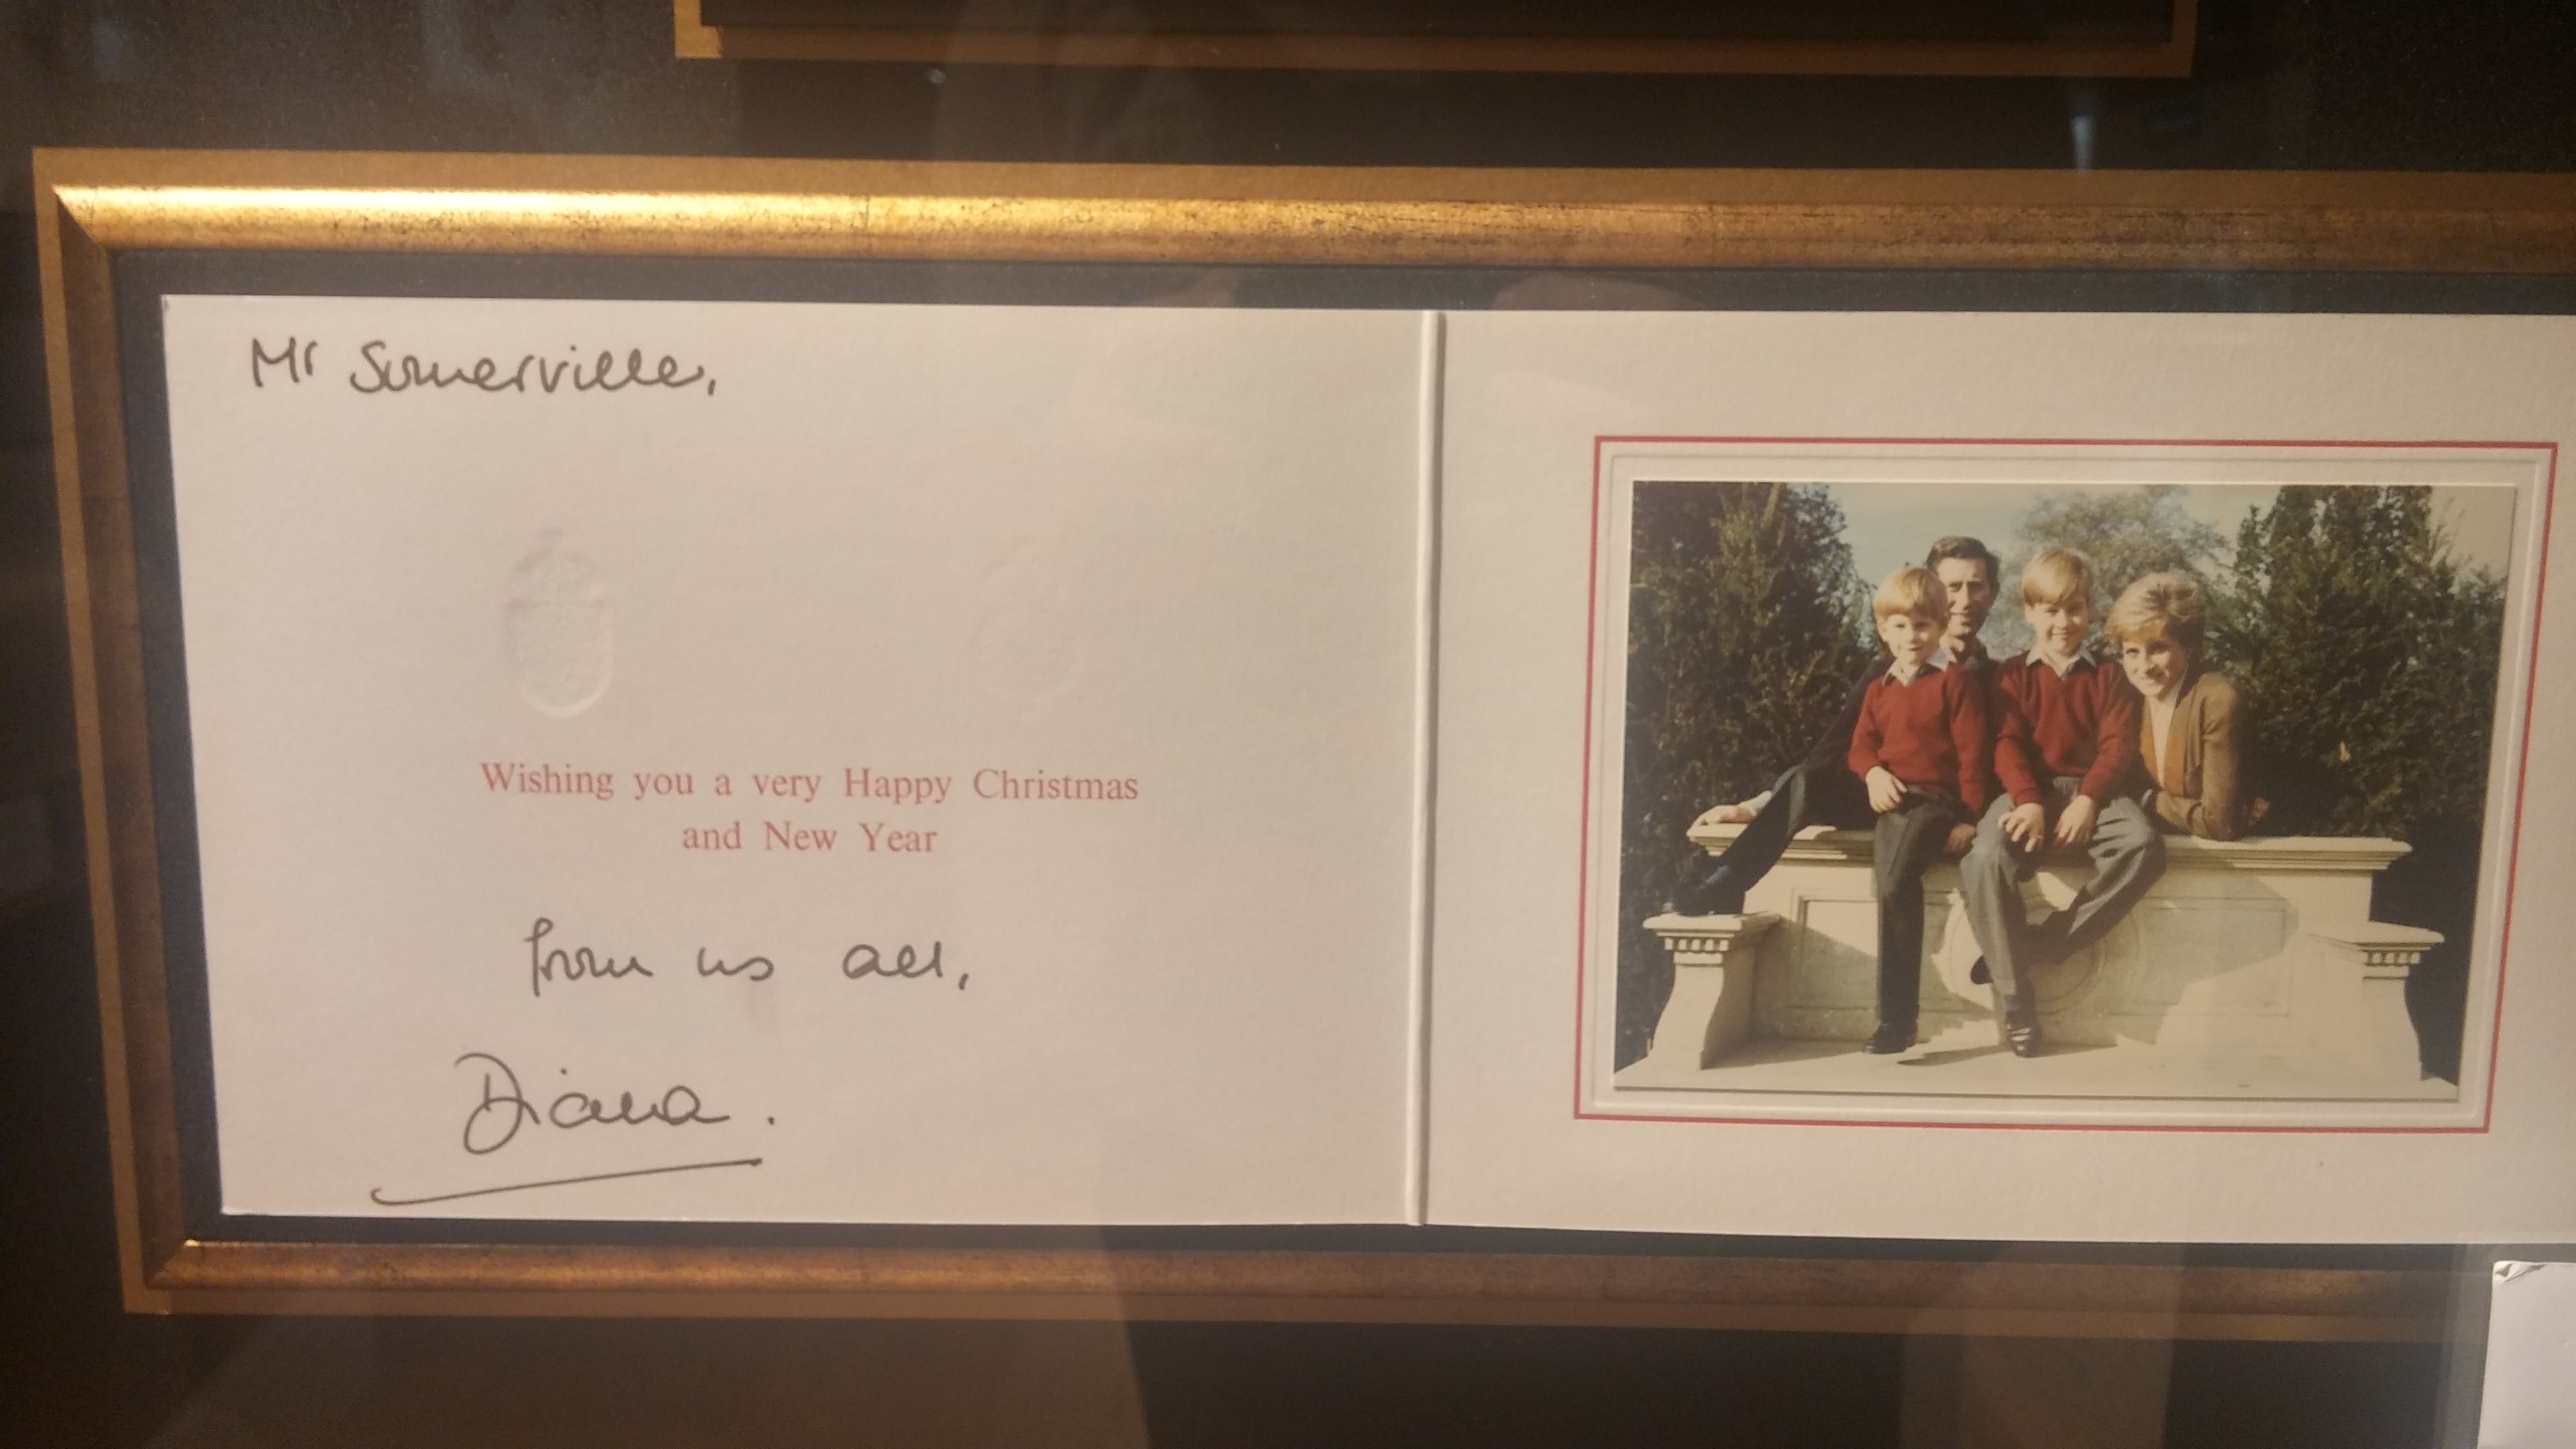 Mr Somerville,
Wishing you a very Happy Christmas
and New Year
from us all,
Diana.